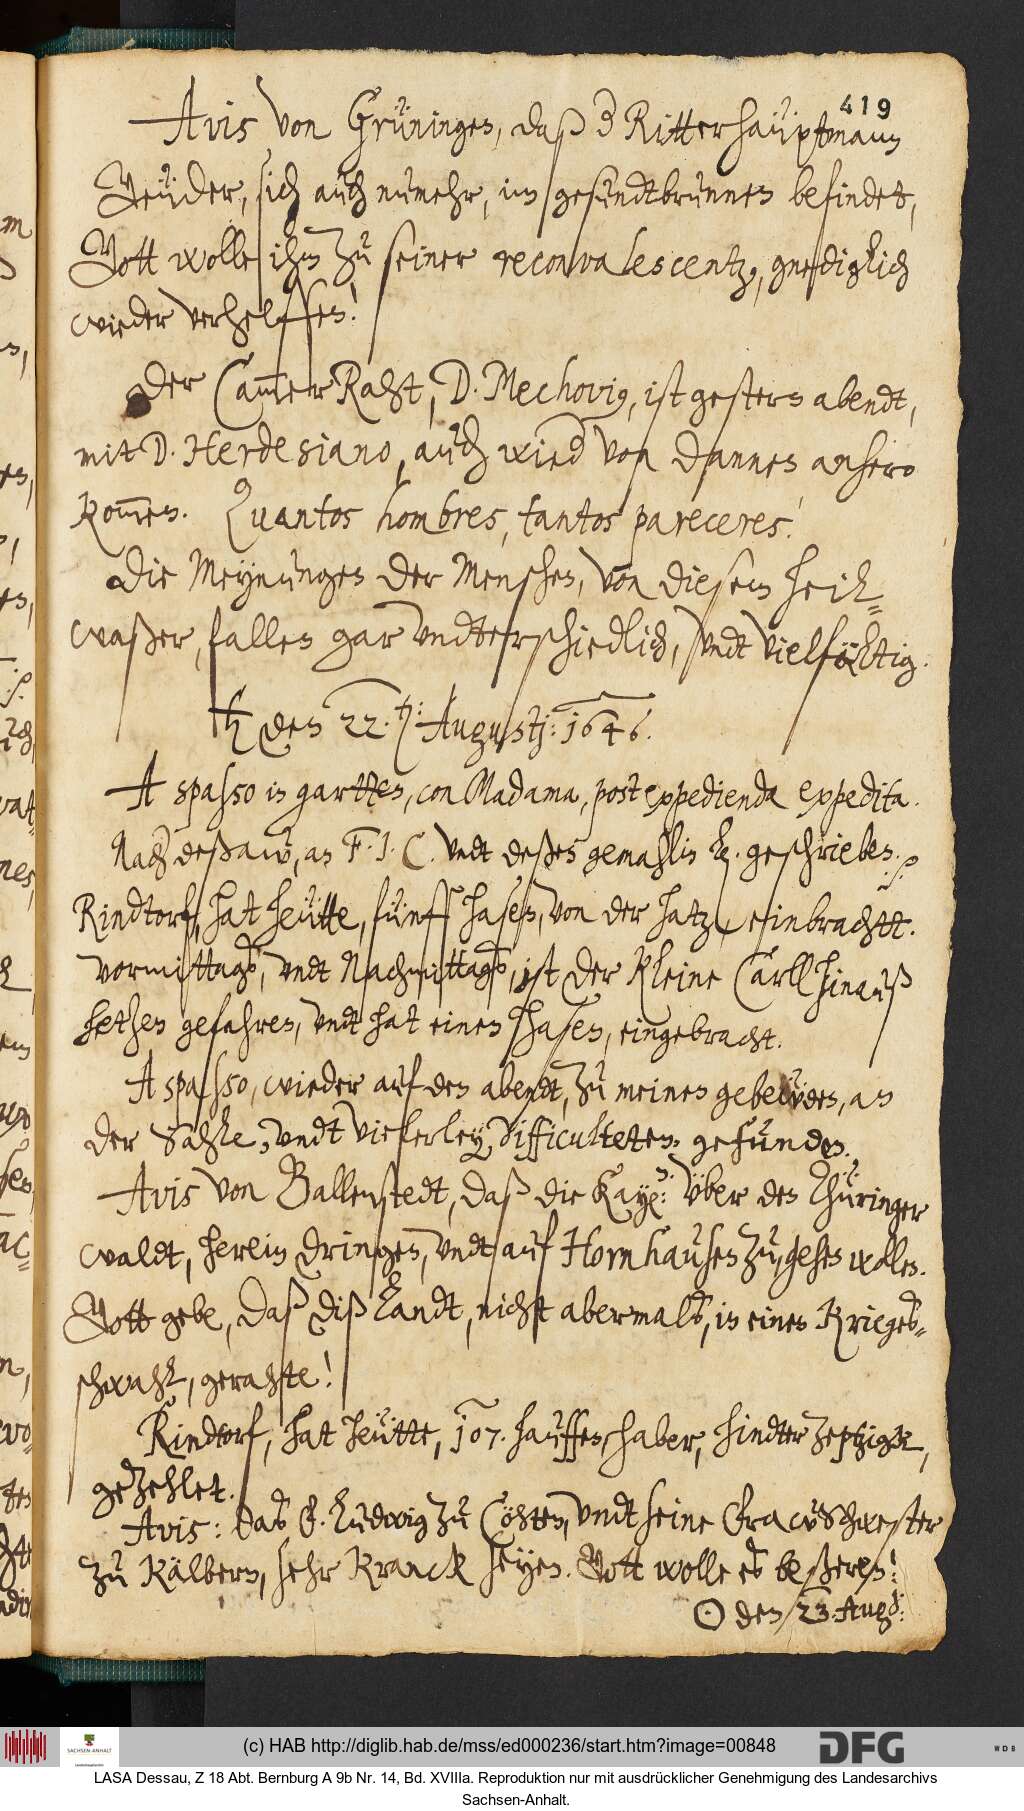 419
Avis von Grüningen, daß der Ritterhaüptmann
Geüder, sich auch nunmehr, im gesundtbrunnen befindet,
Gott wolle ihm zu seiner reconvalescentz, gnediglich
wieder verhelffen!
Der CammerRaht, D. Mechovius, ist gestern abendt,
mit D. Herdesiano, auch wieder von dannen, anhero
kommen. Quantos hombres, tantos pareceres.
Die Meynungen der Menschen, von diesem heil¬
waßer, fallen gar undterschiedlich, undt vielfältig.
♄ den 22. Augustj: 1646.
A spasso in gartten, con Madama, post expedienda expedita.
Nach deßaw, an F. J. C. undt deßen gemahlin geschrieben.
Rindtorf, hat heütte, fünff hasen, von der hatz, einbrachtt.
vormittags, undt Nachmittags, ist der kleine Carll hinauß
hetzen gefahren, undt hat einen hasen, eingebracht.
A spasso, wieder auf den abendt, zu meinen gebeüden, an
der Sahle, undt vielerley difficulteten gefunden.
Avis von Ballenstedt, daß die Kayserischen: über den Thüringer
waldt, herein dringen, undt auf Hornhausen zu, gehen wollen.
Gott gebe, daß diß Landt, nicht abermals, in einen Krieges¬
schwahl, gerahte!
Rindtorf, hat heütte, 107. hauffen, haber, hindter Zeptzigk,
gezehlet.
Avis: das F. Ludwig zu Cöhten, undt seine Fraw Schwester
zu Kälbern, sehr kranck seyen. Gott wolle es beßeren!
☉ den 23. Augusti:
(c) HAB http://diglib.hab.de/mss/ed000236/start.htm?image=00848
SACHSEN-ANHALT
DFG
WDB
LASA Dessau, Z 18 Abt. Bernburg A 9b Nr. 14, Bd. XVIIIa. Reproduktion nur mit ausdrücklicher Genehmigung des Landesarchivs
Sachsen-Anhalt.